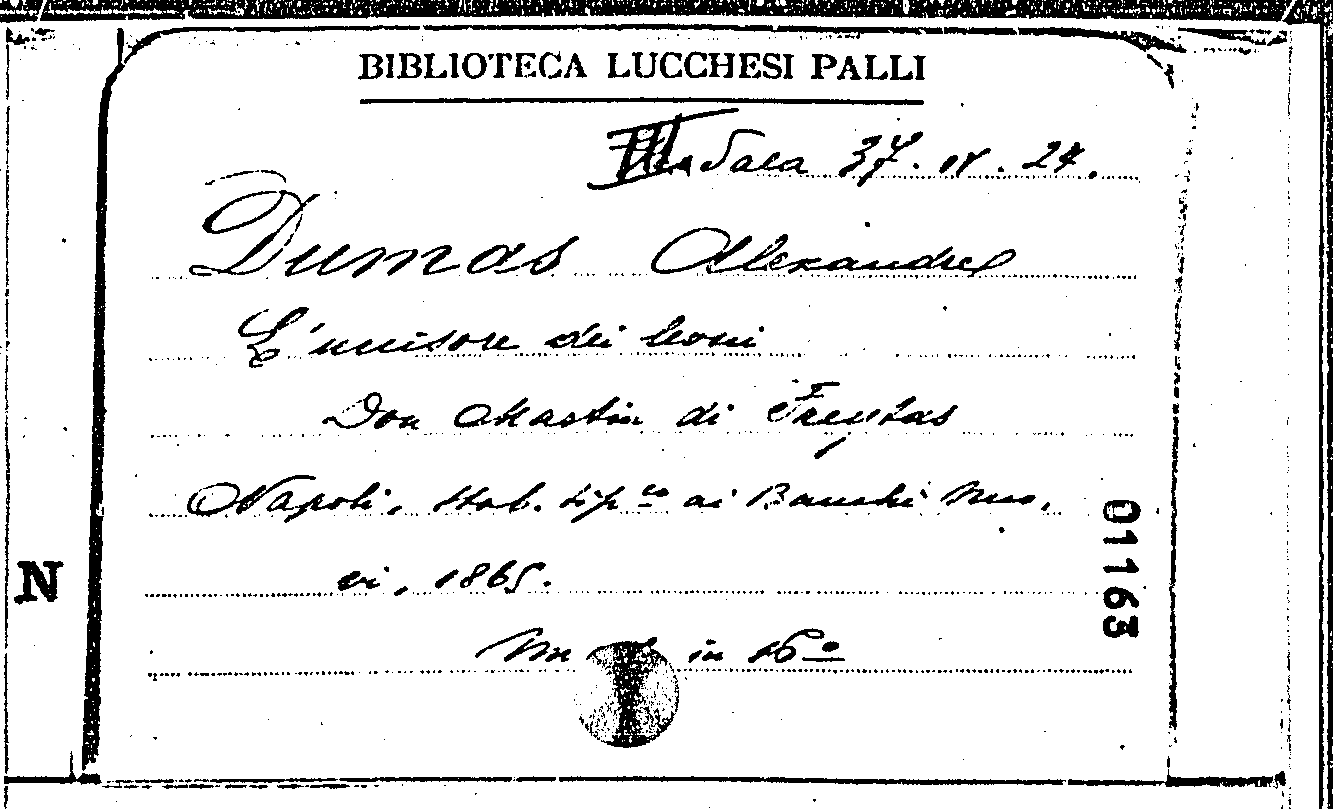 BIBLIOTECA LUCCHESI PALLI
Sala 37. IV. 24.
Dumas Alexandre
L'uccisore dei leoni
Don Martin di Freytas
Napoli, Stab. tip.co ai Banchi Nuo,
vi, 1865.
in 16º
01163
N